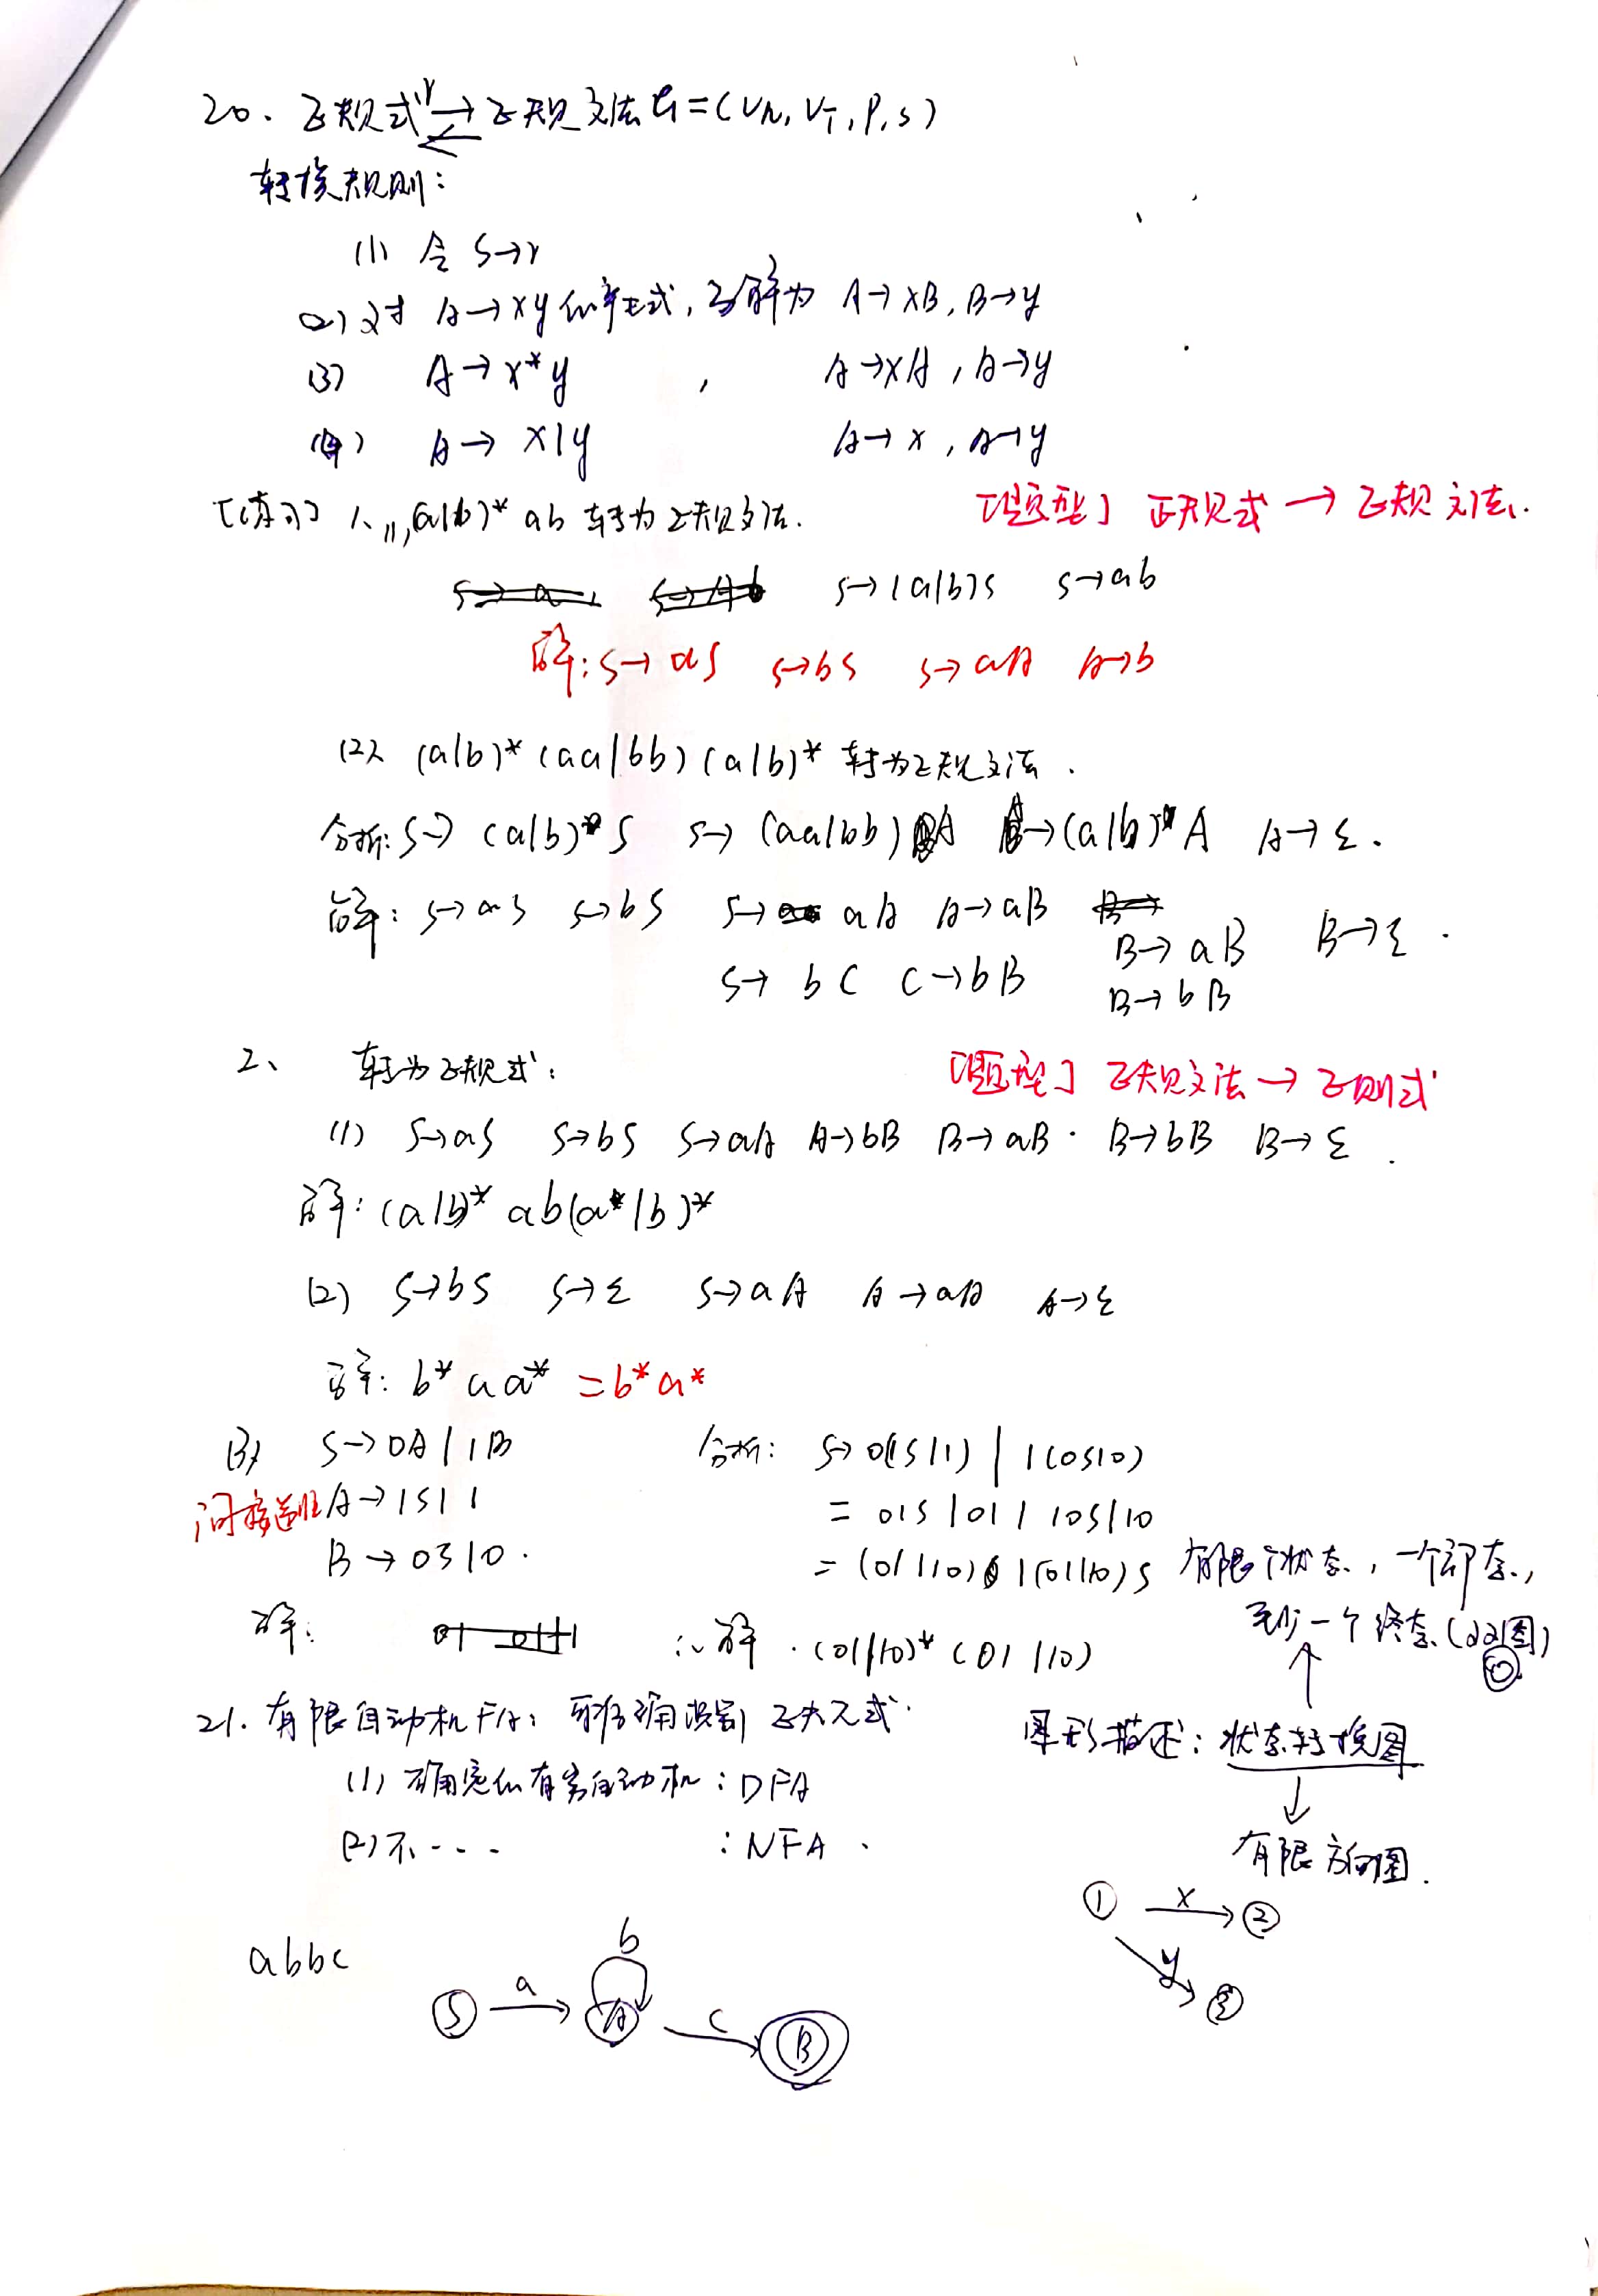 20. 正规式r ⇄ 正规文法G=(VN, VT, P, S)
转换规则:
(1) 令 S→r
(2) 对 A→xy的产生式, 分解为 A→xB, B→y
(3) A→x*y , A→xA, A→y
(4) A→x|y A→x, A→y
[练习] 1、(1)(a|b)*ab 转为正规文法. [题型] 正规式→正规文法.
S→(a|b)S S→ab
解: S→aS S→bS S→aA A→b
(2) (a|b)*(aa|bb)(a|b)* 转为正规文法.
分析: S→(a|b)*S S→(aa|bb)A A→(a|b)*A A→ε.
解: S→aS S→bS S→aA A→aB B→aB B→ε.
S→bC C→bB B→bB
2、 转为正规式: [题型] 正规文法→正则式
(1) S→aS S→bS S→aA A→bB B→aB. B→bB B→ε.
解: (a|b)*ab(a*|b)*
(2) S→bS S→ε S→aA A→aA A→ε
解: b*aa* =b*a*
(3) S→0A|1B 分析: S→0(1S|1)|1(0S|0)
间接递归 A→1S|1 = 01S|01|10S|10
B→0S|0. = (01|10)|(01|10)S 有限个状态, 一个初态,
解: ∴解.(01|10)*(01|10) 至少一个终态(双圈)
21. 有限自动机FA: 可准确识别正规式. 图形描述: 状态转换图
(1) 确定的有穷自动机: DFA
(2) 不--- : NFA. 有限方向图.
① x ②
y ③
abbc
S a A b c B